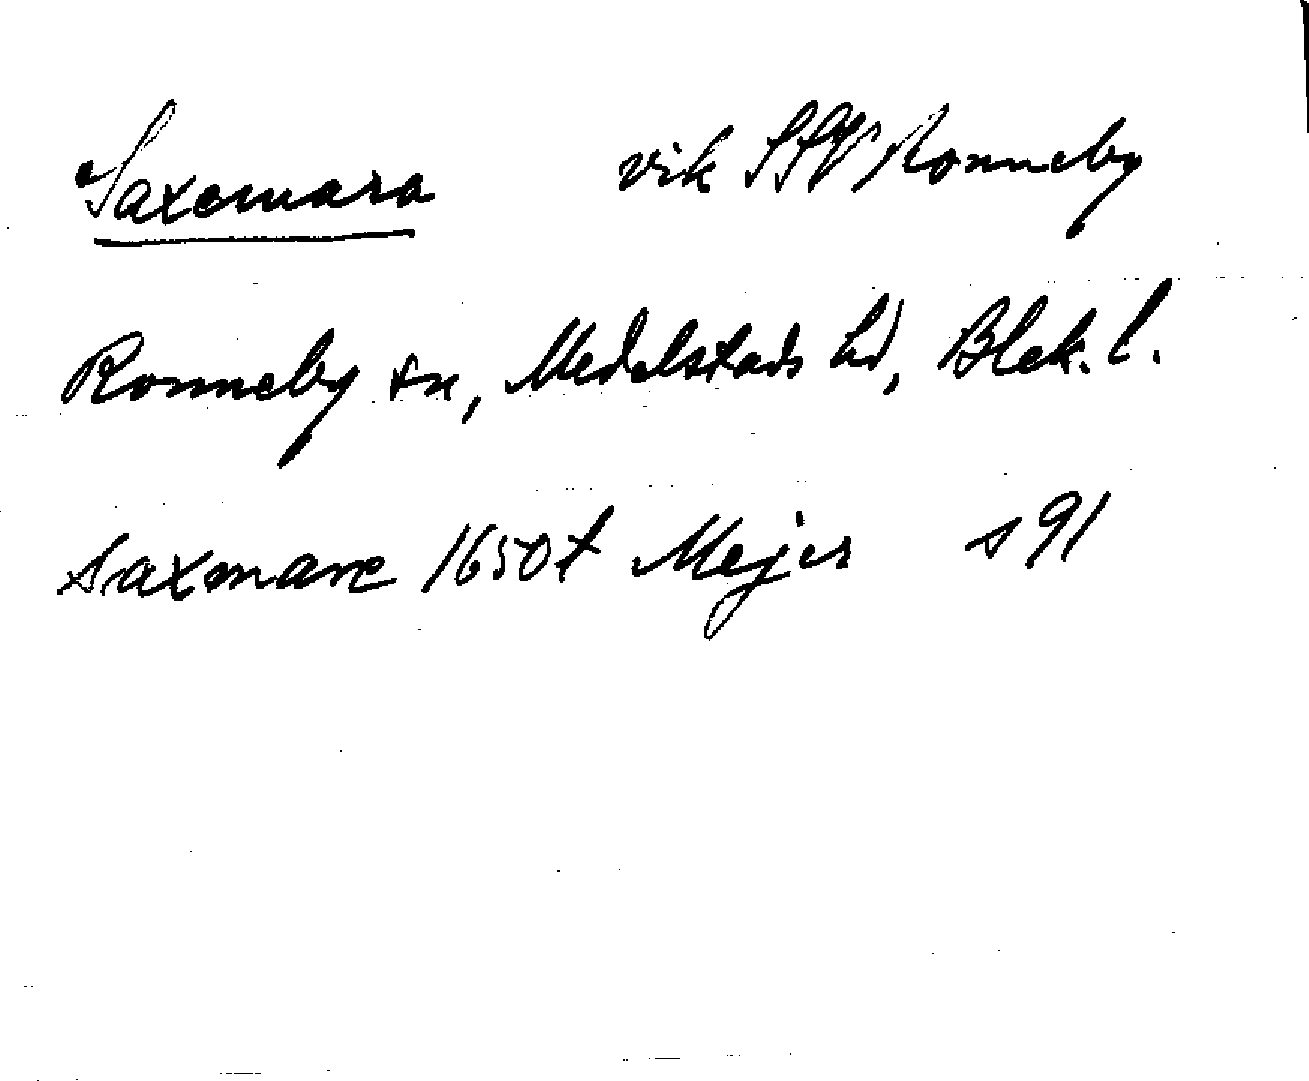 Saxemara vik SSV Ronneby
Ronneby sn, Medelstads hd, Blek. l.
Saxmare 1650t Mejer s 91